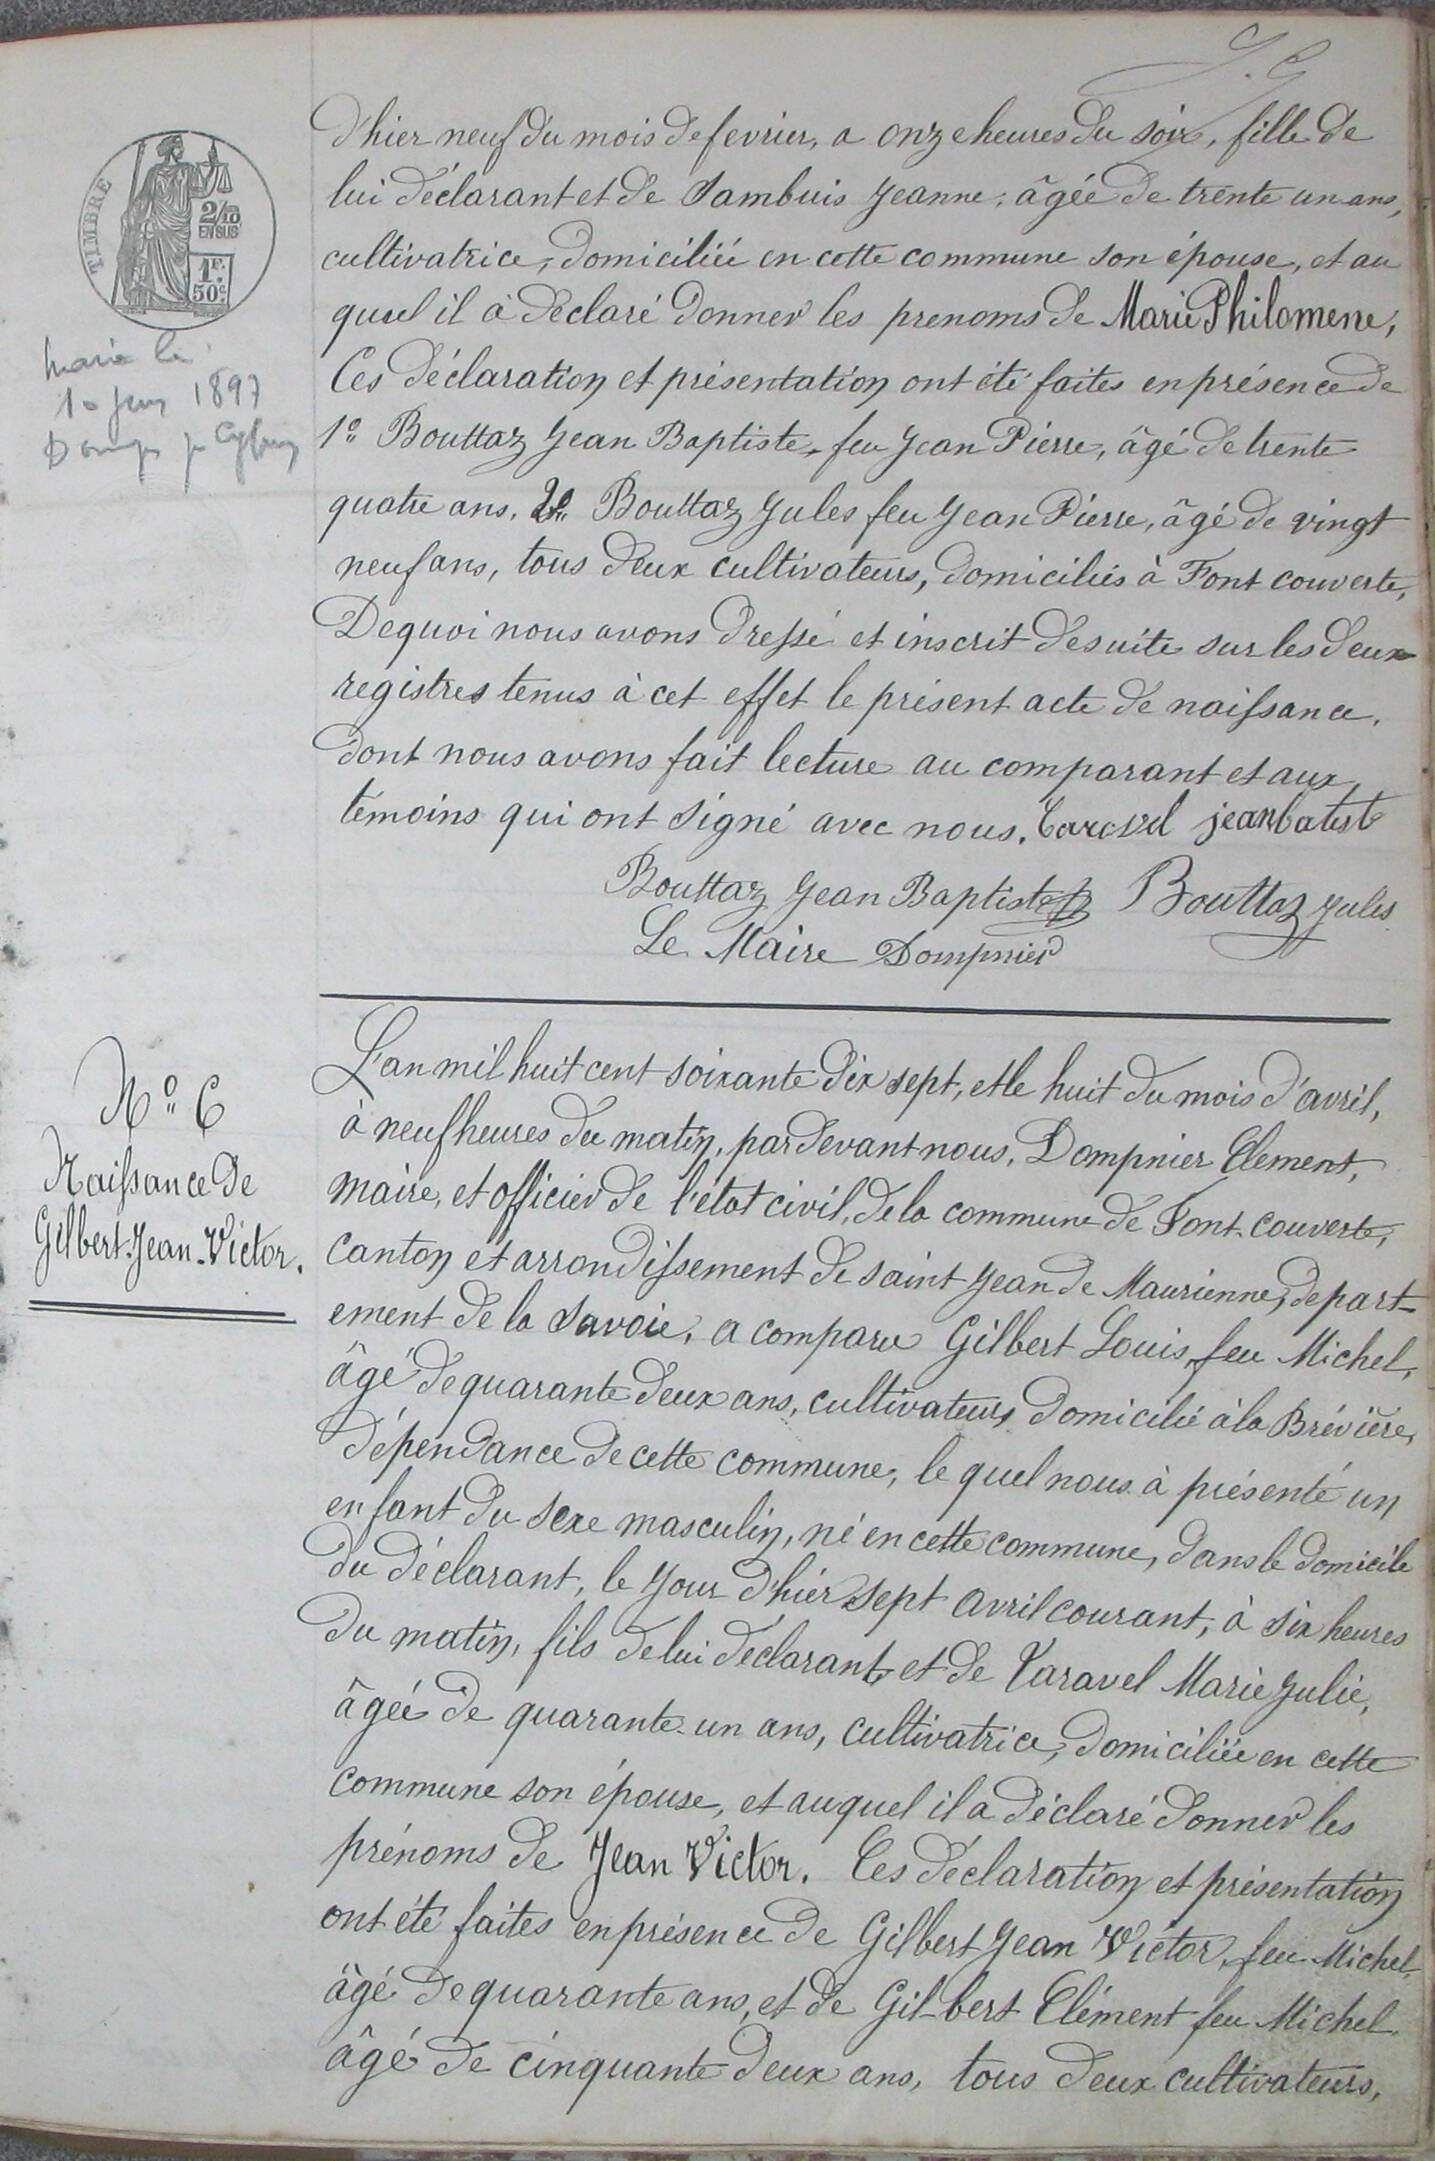 J. G
d'hier neuf du mois de fevrier, a onze heures du soir, fille de
lui déclarant et de Sambuis Jeanne, âgée de trente un ans,
cultivatrice, domiciliée en cette commune son épouse, et au
quel il à déclaré donner les prenoms de Marie Philomene,
Ces déclaration et présentation ont été faites en présence de
1º Bouttaz Jean Baptiste, feu Jean Pierre, âgé de trente
quatre ans, 2º Bouttaz Jules feu Jean Pierre, âgé de vingt
neuf ans, tous deux cultivateurs, domiciliés à Font couverte,
De quoi nous avons dressé et inscrit de suite sur les deux
registres tenus à cet effet le présent acte de naissance,
dont nous avons fait lecture au comparant et aux
témoins qui ont signé avec nous. jeanbatist
Bouttaz Jean Baptiste Bouttaz Jules
Le Maire Dompnier
TIMBRE
2/10
EN SUS
1F.
50c.
marié le
1897
Nº 6
Naissance de
Gilbert Jean-Victor.
L'an mil huit cent soixante dix sept, et le huit du mois d'avril,
à neuf heures du matin, par devant nous, Dompnier Clement,
maire, et officier de l'état civil, de la commune de Font-couverte,
canton et arrondissement de saint Jean de Maurienne, depart-
ement de la Savoie, a comparu Gilbert Louis, feu Michel,
âgé de quarante deux ans, cultivateurs domicilié à la Brévière,
dépendance de cette commune, le quel nous à présenté un
enfant du sexe masculin, né en cette commune, dans le domicile
du déclarant, le jour d'hiér sept avril courant, à six heures
du matin, fils de lui déclarant, et de Taravel Marie Julie,
âgée de quarante-un ans, cultivatrice, domiciliée en cette
commune son épouse, et auquel il a déclaré donner les
prénoms de Jean Victor. Ces déclaration et présentation
ont été faites en présence de Gilbert Jean Victor, feu Michel,
âgé de quarante ans, et de Gil-bert Clément feu Michel,
âgé de cinquante deux ans, tous deux cultivateurs,